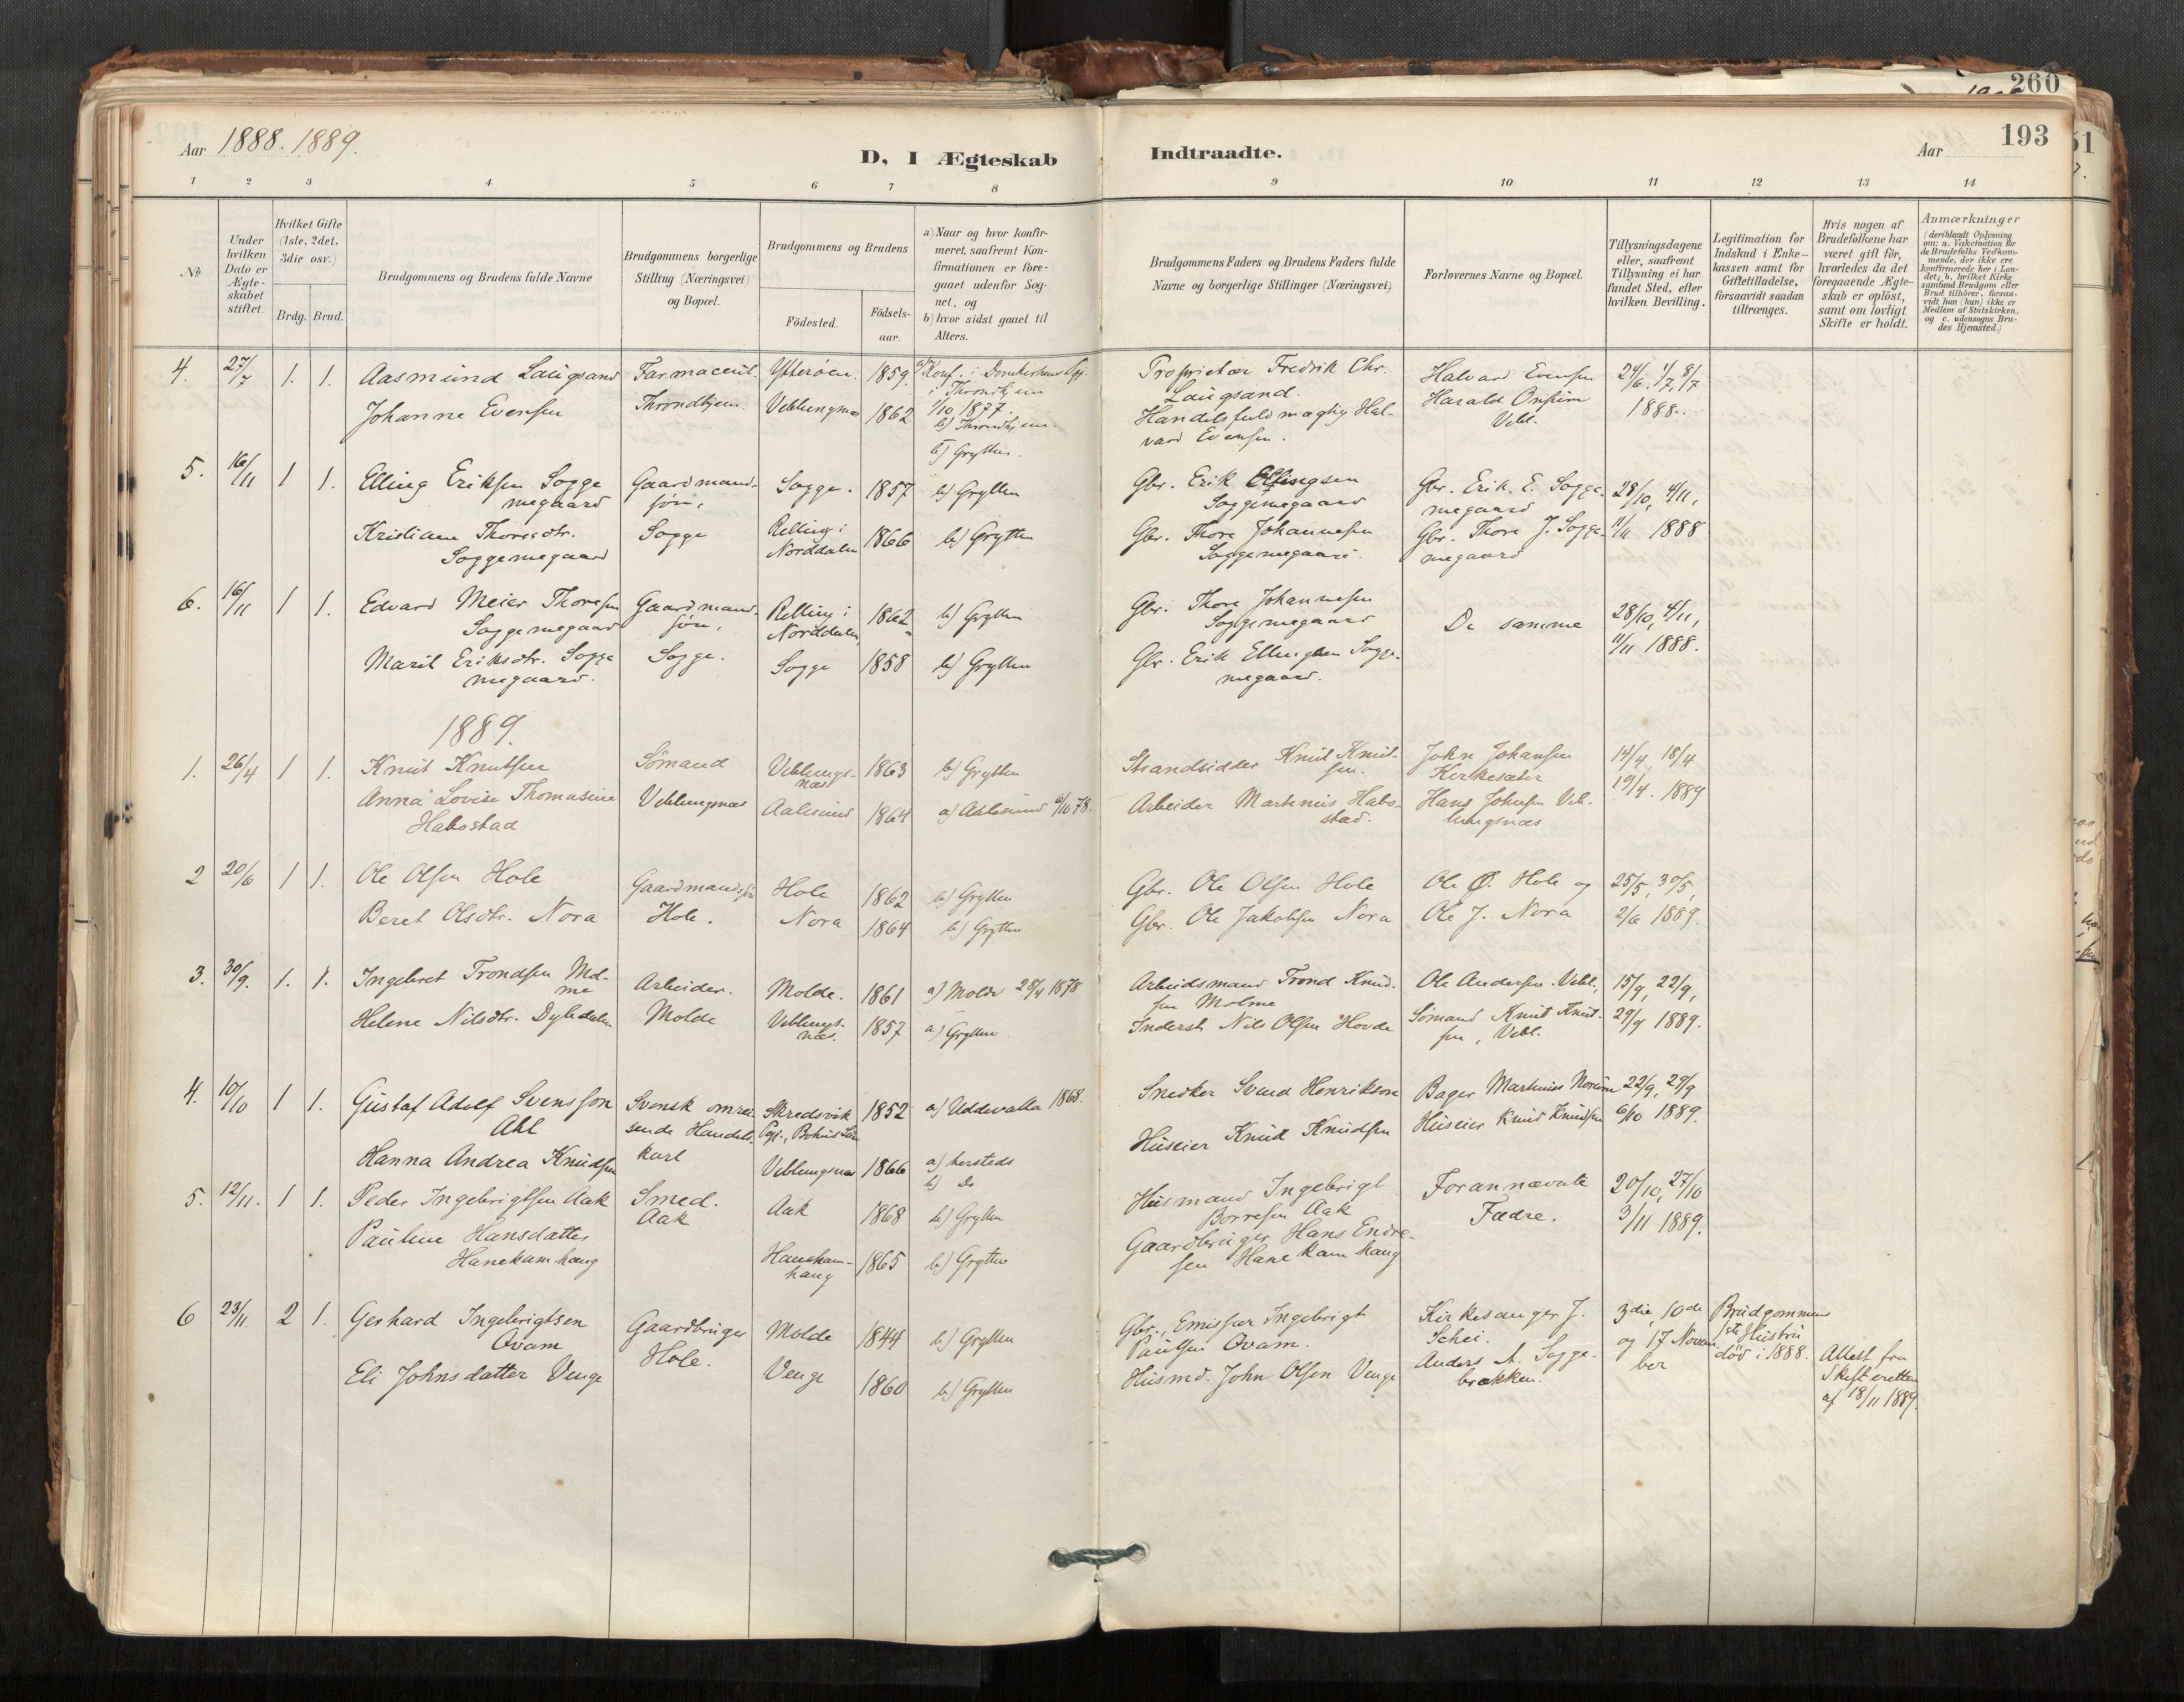 260
193
Aar 1888. 1889.
D, I Ægteskab
Indtraadte.
Aar
1 2 3 4 5 6 7 8 9 10 11 12 13 14
No
Under hvilken Dato er Ægteskabet stiftet.
Hvilket Gifte (1ste, 2det, 3die osv.)
Brdg. Brud.
Brudgommens og Brudens fulde Navne
Brudgommens borgerlige Stilling (Næringsvei) og Bopæl.
Brudgommens og Brudens
Födested.
Födselsaar.
a) Naar og hvor konfirmeret, saafremt Konfirmationen er foregaaet udenfor Sognet, og
b) hvor sidst gaaet til Alters.
Brudgommens Faders og Brudens Faders fulde Navne og borgerlige Stillinger (Næringsvei)
Forlovernes Navne og Bopæl.
Tillysningsdagene eller, saafremt Tillysning ei har fundet Sted, efter hvilken Bevilling.
Legitimation for Indskud i Enkekassen samt for Giftetilladelse, forsaavidt saadan tiltrænges.
Hvis nogen af Brudefolkene har været gift før, hvorledes da det foregaaende Ægteskab er oplöst, samt om lovligt Skifte er holdt.
Anmærkninger
(deriblandt Oplysning om: a. Vakcination for de Brudefolks Vedkommende, der ikke ere konfirmerede her i Landet; b. hvilket Kirkesamfund Brudgom eller Brud tilhörer, forsaavidt han (hun) ikke er Medlem af Statskirken, og c. udensogns Brudes Hjemsted.)
4. 27/7 1. 1. Aasmund Laugsand Farmaceut. Ytterøen. 1859. a) Konf. i Domkirkens Sgj. Proprietær Fredrik Chr. Halvard Evensen 24/6, 1/7, 8/7
i Throndhjem Laugsand. Harald Onsum 1888.
Johanne Evensen Throndhjem. Veblungsnæs 1862 1/10 1877. Handelsfuldmægtig Hal- Vebl.
b) Throndhjem. vard Evensen.
b) Grytten.
5. 16/11 1 1. Elling Eriksen Sogge Gaardmands- Sogge. 1857 b) Grytten Gbr. Erik Ellingsen Gbr. Erik E. Sogge- 28/10, 4/11,
megaard søn, Soggemegaard megaard
Kristiane Thoresdtr. Sogge Relling i 1866 b) Grytten Gbr. Thore Johannesen Gbr. Thore J. Sogge- 11/11 1888
Soggemegaard Norddalen Soggemegaard. megaard
6. 16/11 1 1. Edvard Meier Thoresen Gaardmand- Relling i 1862 b) Grytten Gbr. Thore Johannesen De samme 28/10, 4/11,
Soggemegaard søn, Norddalen, Soggemegaard
Marit Eriksdtr. Sogge Sogge. Sogge 1858 b) Grytten Gbr. Erik Ellingsen Sogge- 11/11 1888.
megaard. megaard.
1889.
1. 26/4 1 1. Knut Knutsen Sömand Veblungs- 1863 b) Grytten Strandsidder Knut Knut- John Johansen 14/4, 18/4
næs sen. Kirkesæter
Anna Lovise Thomasine Veblungsnæs Aalesund 1864 a) Aalesund 6/10 78. Arbeider Martinus Habo- Hans Johnsen Veb- 19/4. 1889
Habostad stad. lungsnæs
2 20/6 1 1. Ole Olsen Hole Gaardmandssøn Hole 1862 b) Grytten Gbr. Ole Olsen Hole Ole Ø. Hole og 25/5, 30/5,
Beret Olsdtr. Nora Hole. Nora 1864 b) Grytten Gbr. Ole Jakobsen Nora Ole J. Nora 2/6 1889.
3. 30/9. 1. 1. Ingebret Trondsen Mol- Arbeider. Molde. 1861 a) Molde 28/4 1878 Arbeidsmand Trond Knud- Ole Andersen Vebl., 15/9, 22/9,
me sen Molme
Helene Nilsdtr. Dyledalen Molde Veblungs- 1857 a) Grytten. Inderst Nils Olsen Hovde Sømand Knut Knut- 29/9 1889.
næs. sen, Vebl.
4. 10/10 1 1. Gustaf Adolf Svensson Svensk omrei- Skredsvik 1852 a) Uddevalla 1868. Snedker Svend Henrikson Bager Martinus 22/9, 29/9
Ahl sende Handels- Pgj., Bohus Län
Hanna Andrea Knudsen karl Veblungsnæs 1866 a) hersteds Huseier Knud Knudsen Huseier Knud Knudsen 6/10 1889.
b) Do
5. 12/11. 1 1. Peder Ingebrigtsen Aak Smed. Aak 1868 b) Grytten Husmand Ingebrigt Forannævnte 20/10, 27/10
Aak Borresen Aak Fædre. 3/11 1889.
Pauline Hansdatter Hanekam- 1865 b) Grytten Gaardbruger Hans Endre-
Hanekamhaug haug sen Hanekamhaug
6 23/11. 2 1. Gerhard Ingebrigtsen Gaardbruger Molde 1844 b) Grytten Gbr., Emissær Ingebrigt Kirkesanger J. 3die, 10de Brudgommens
Ovam Paulsen Ovam. Schei. og 17 Novem- 1ste Hustru
Eli Johnsdatter Venge Hole. Venge 1860 b) Grytten Husmd. John Olsen Venge Anders A. Sogge- ber død i 1888. Attest fra
brekken. Skifteretten
af 18/11 1889.